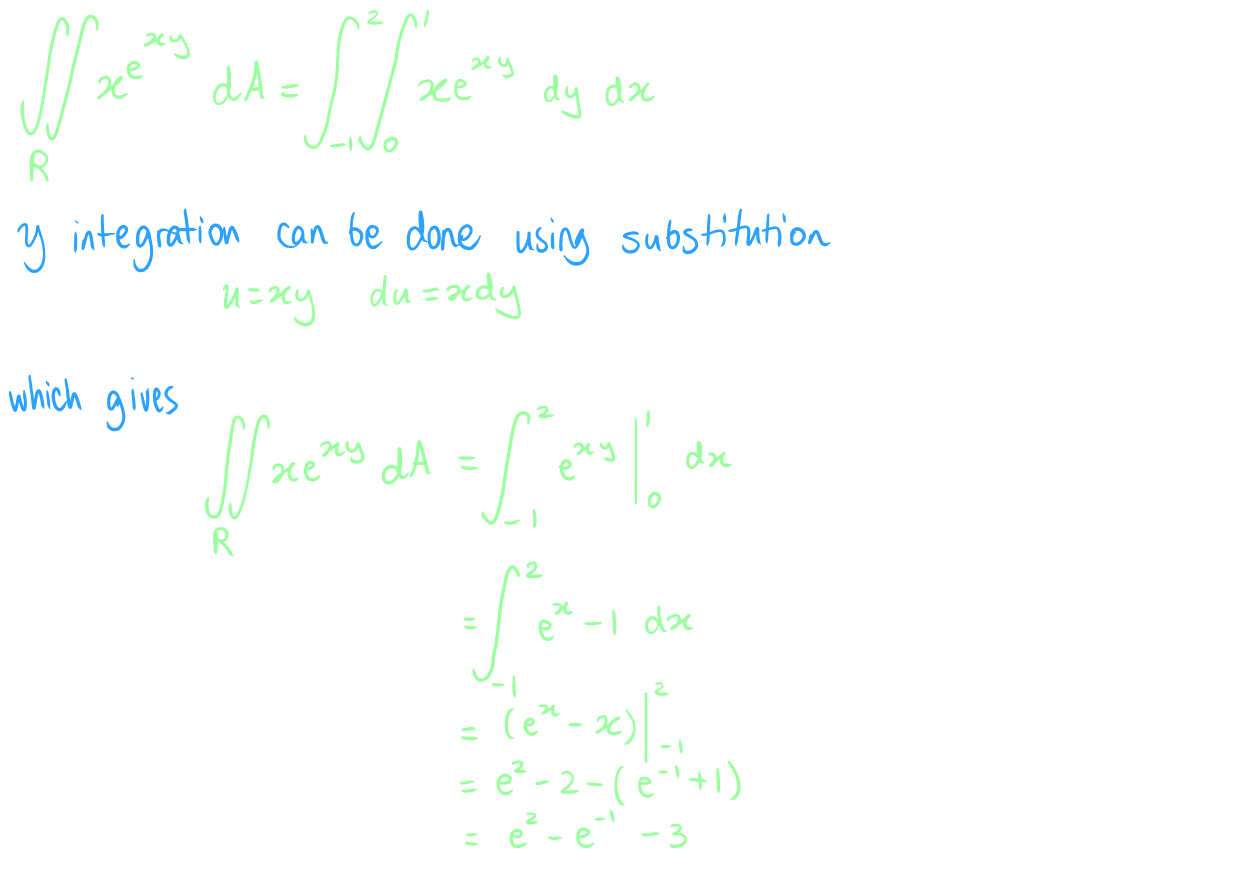 ∬_R xe^{xy} dA = ∫_{-1}^{2} ∫_{0}^{1} xe^{xy} dy dx
y integration can be done using substitution
u = xy du = xdy
which gives
∬_R xe^{xy} dA = ∫_{-1}^{2} e^{xy} |_{0}^{1} dx
= ∫_{-1}^{2} e^{x} - 1 dx
= (e^{x} - x) |_{-1}^{2}
= e^{2} - 2 - (e^{-1} + 1)
= e^{2} - e^{-1} - 3